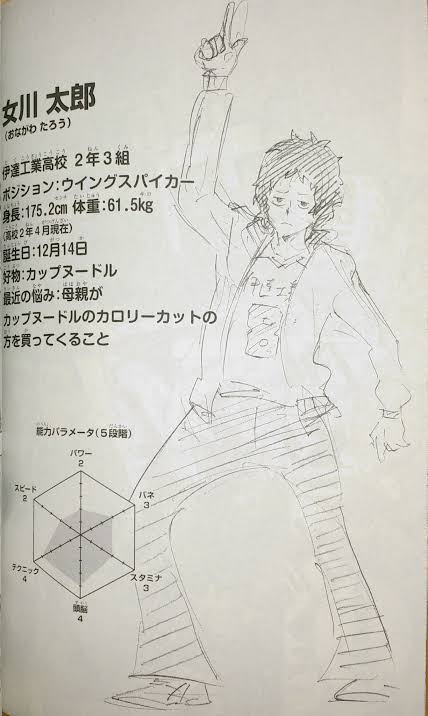 女川 太郎
(おながわ たろう)
伊達工業高校 2年3組
ポジション:ウイングスパイカー
身長:175.2cm 体重:61.5kg
(高校2年4月現在)
誕生日:12月14日
好物:カップヌードル
最近の悩み:母親が
カップヌードルのカロリーカットの
方を買ってくること
能力パラメータ(5段階)
パワー
2
スピード
2
バネ
3
テクニック
4
スタミナ
3
頭脳
4